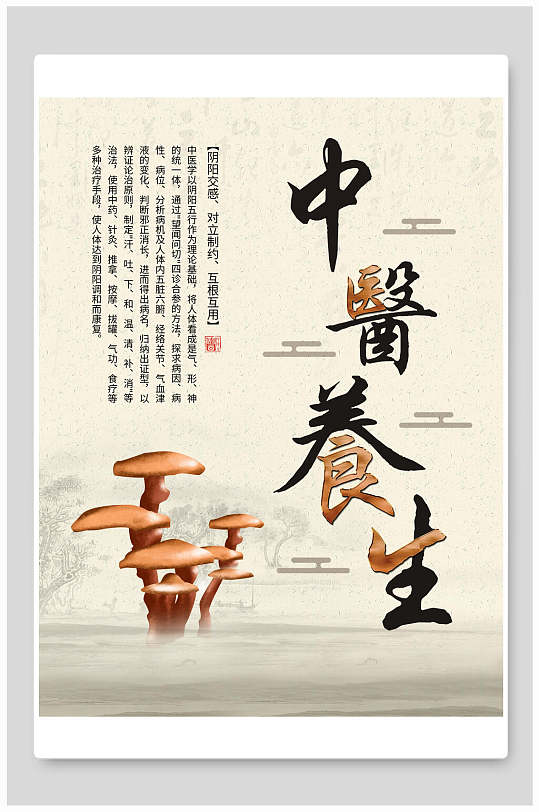 中醫養生
【阴阳交感、对立制约、互根互用】
中医学以阴阳五行作为理论基础，将人体看成是气、形、神
的统一体，通过“望闻问切”四诊合参的方法，探求病因、病
性、病位、分析病机及人体内五脏六腑、经络关节、气血津
液的变化、判断邪正消长，进而得出病名，归纳出证型，以
辨证论治原则，制定“汗、吐、下、和、温、清、补、消”等
治法，使用中药、针灸、推拿、按摩、拔罐、气功、食疗等
多种治疗手段，使人体达到阴阳调和而康复。